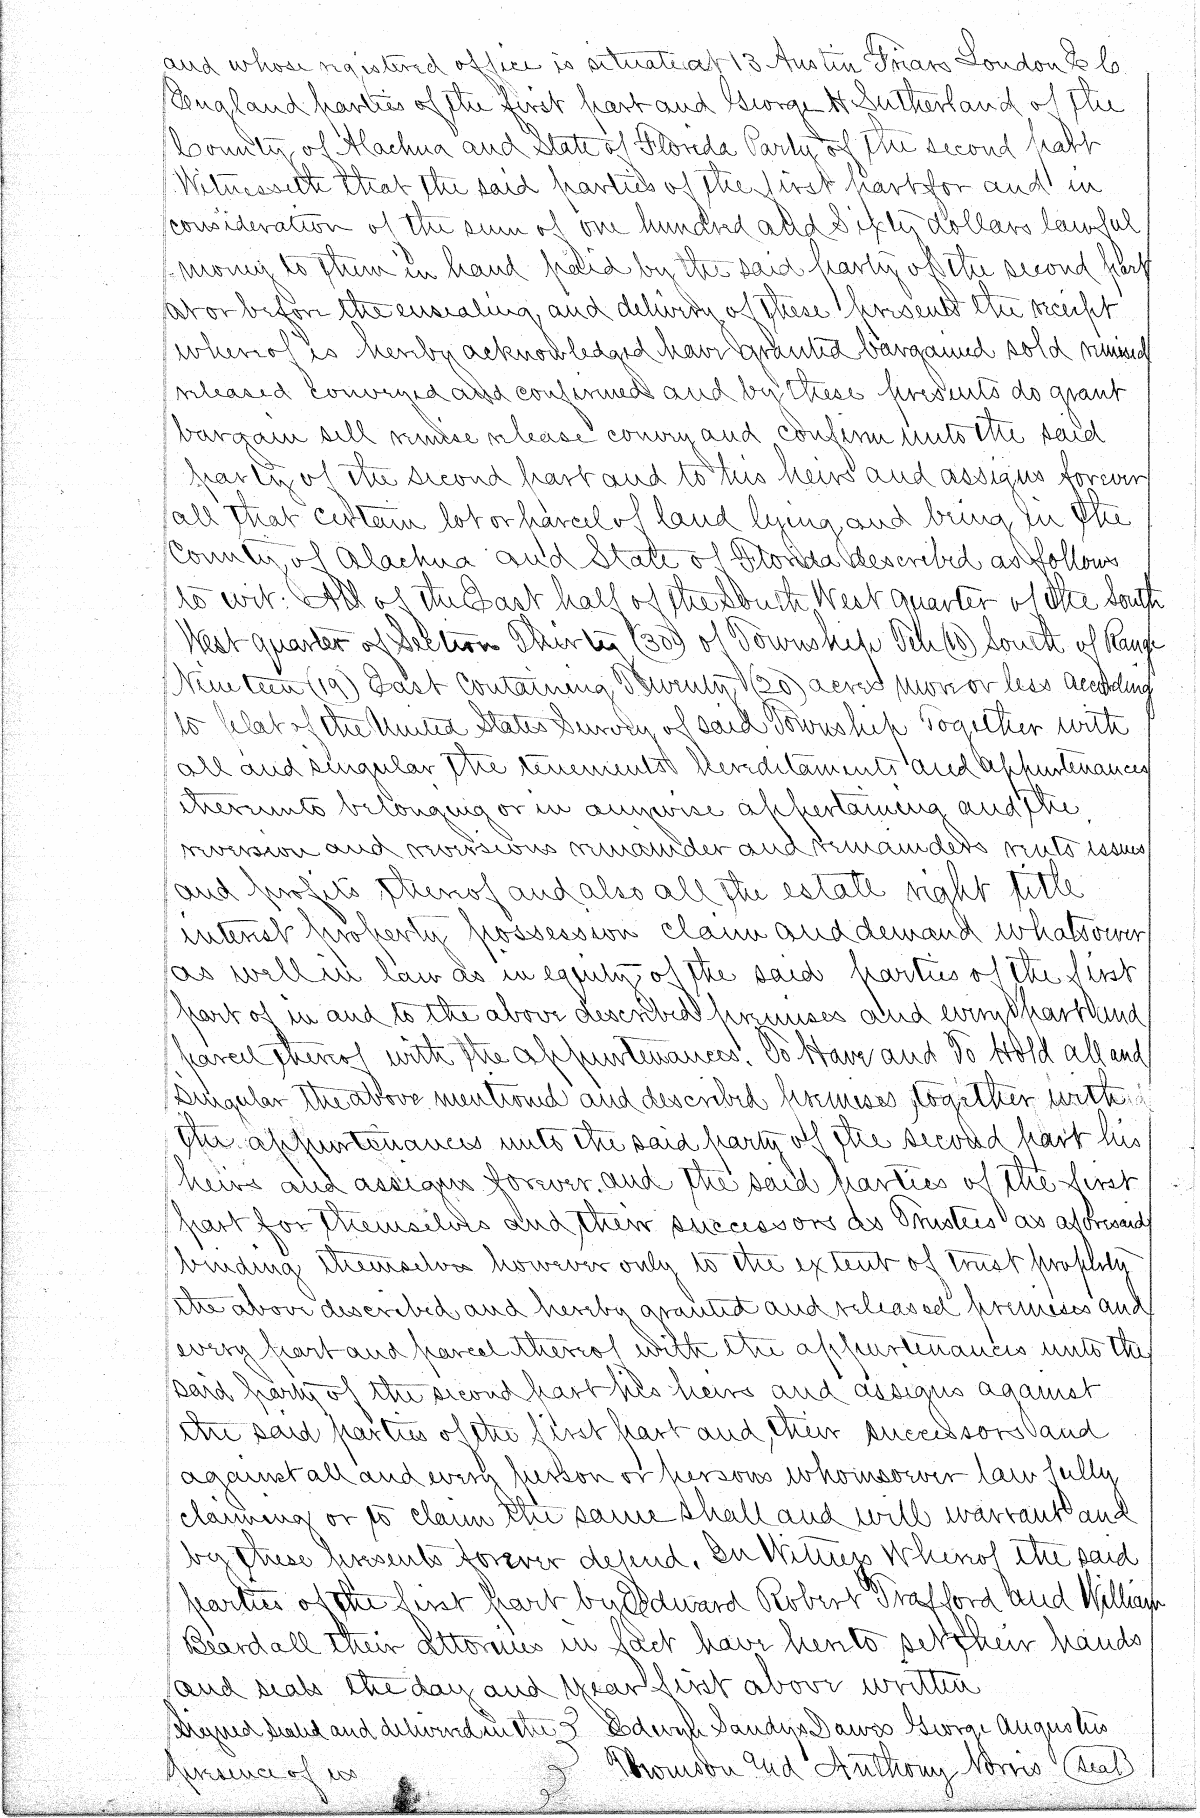 and whose registered office is situate at 13 Austin Friars London E C
England parties of the first part and George H Sutherland of the
County of Alachua and State of Florida Party of the second part
Witnesseth that the said parties of the first part for and in
consideration of the sum of one hundred and Sixty dollars lawful
money to them in hand paid by the said party of the second part
at or before the ensealing and delivery of these presents the receipt
whereof is hereby acknowledged have granted bargained sold remised
released conveyed and confirmed and by these presents do grant
bargain sell remise release convey and confirm unto the said
party of the second part and to his heirs and assigns forever
all that certain lot or parcel of land lying and being in the
County of Alachua and State of Florida described as follows
to wit: All of the East half of the South West quarter of the South
West quarter of Section Thirty (30) of Township Ten (10) South of Range
Nineteen (19) East Containing Twenty (20) acres more or less according
to plat of the United States Survey of said Township Together with
all and singular the tenements hereditaments and appurtenances
thereunto belonging or in anywise appertaining and the
reversion and reversions remainder and remainders rents issues
and profits thereof and also all the estate right title
interest property possession claim and demand whatsoever
as well in law as in equity of the said parties of the first
part of in and to the above described premises and every part and
parcel thereof with the appurtenances. To Have and To Hold all and
singular the above mentioned and described premises together with
the appurtenances unto the said party of the second part his
heirs and assigns forever. and the said parties of the first
part for themselves and their successors as Trustees as aforesaid
binding themselves however only to the extent of trust property
the above described and hereby granted and released premises and
every part and parcel thereof with the appurtenances unto the
said party of the second part his heirs and assigns against
the said parties of the first part and their successors and
against all and every person or persons whomsoever lawfully
claiming or to claim the same shall and will warrant and
by these presents forever defend. In Witness Whereof the said
parties of the first part by Edward Robert Trafford and William
Beardall their attornies in fact have hereto set their hands
and seals the day and year first above written
Signed sealed and delivered in the } Edwyn Sandys Dawes George Augustus
presence of us } Thomson and Anthony Norris (seal)